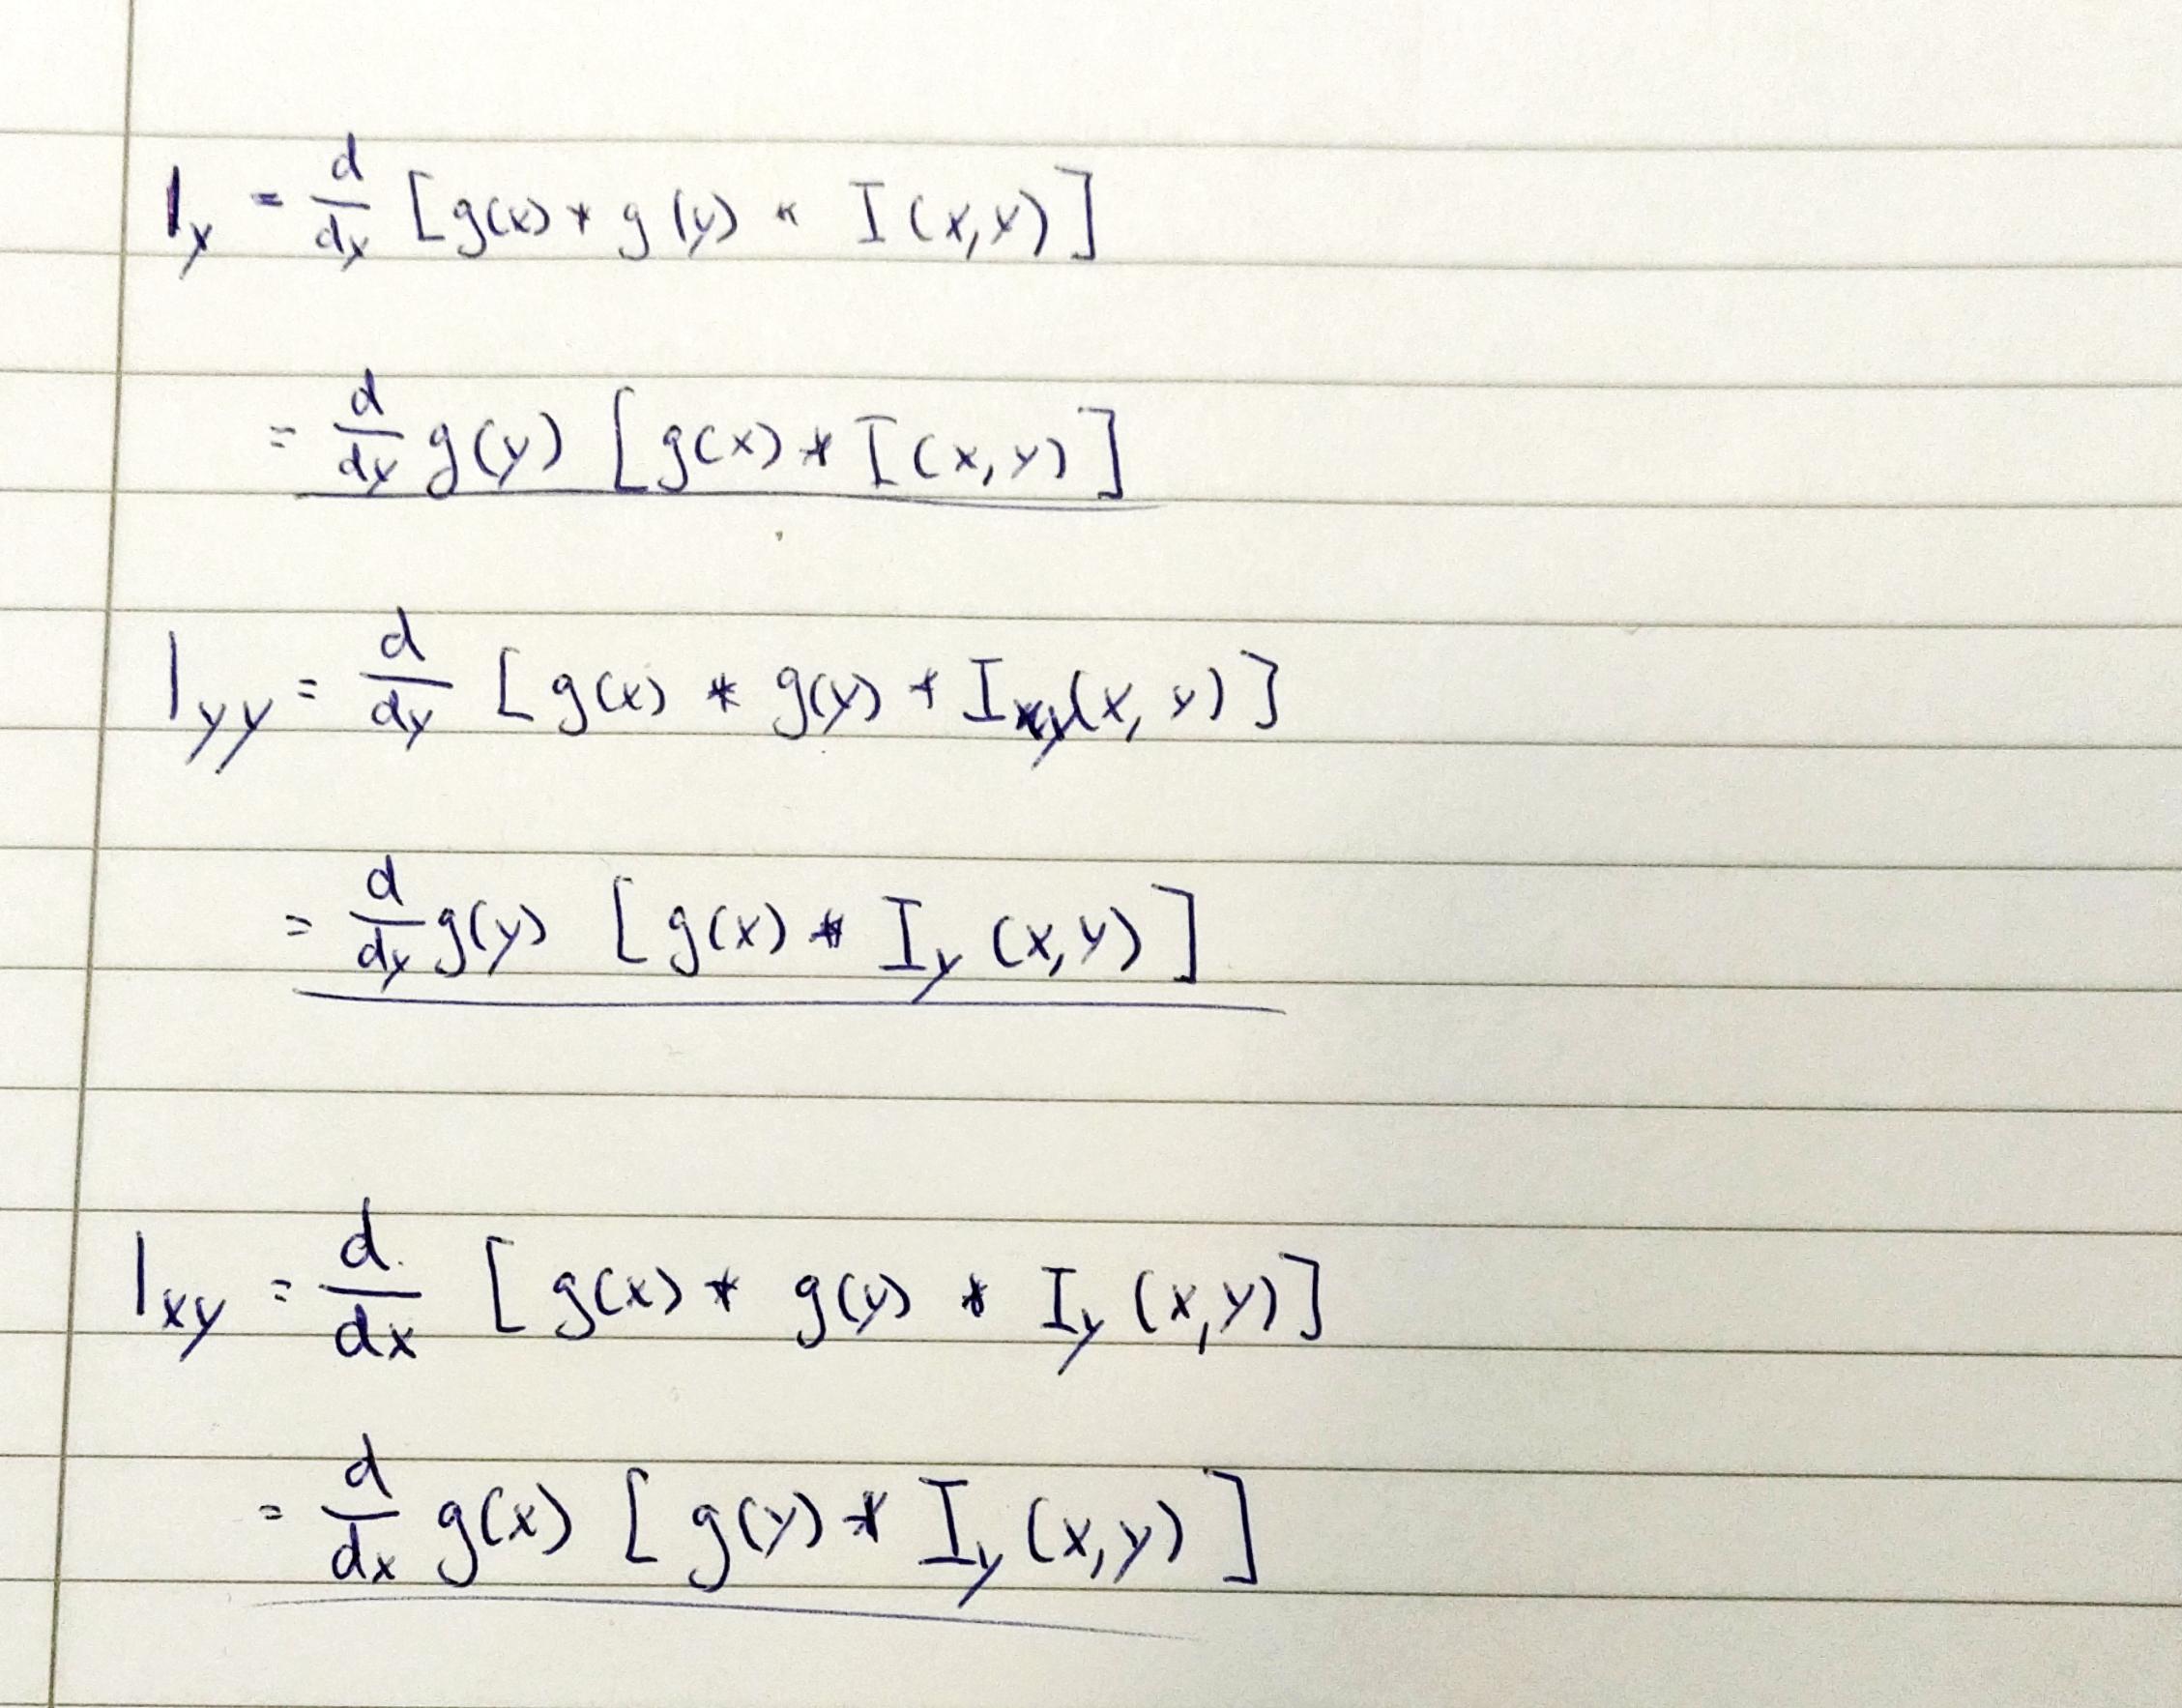 I_y = d/dy [g(x) * g(y) * I(x,y)]
= d/dy g(y) [g(x) * I(x,y)]
I_yy = d/dy [g(x) * g(y) * I_y(x,y)]
= d/dy g(y) [g(x) * I_y (x,y)]
I_xy = d/dx [g(x) * g(y) * I_y (x,y)]
= d/dx g(x) [g(y) * I_y (x,y)]